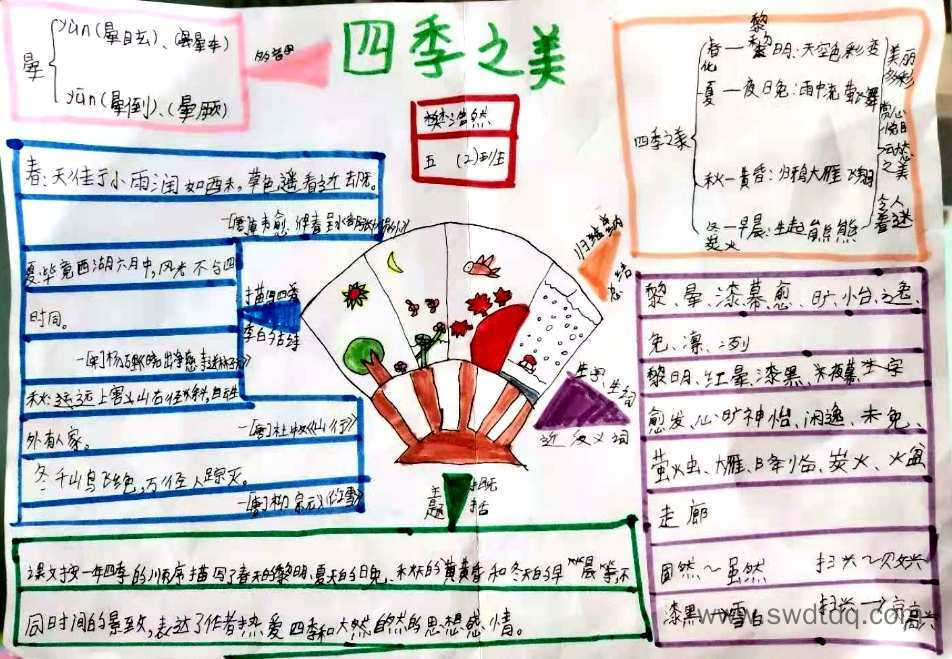 四季之美
晕
yùn(晕目眩)、(
yūn(晕倒)、(晕厥)
多音字
樊浩然
五 (2)班
四季之美
春—黎明:天空色彩变化
夏—夜晚:雨中流萤飞舞
秋—黄昏:归鸦大雁飞翔
冬—早晨:生起熊熊炭火
美丽多彩
赏心悦目
动态之美
令人着迷
归结
总结
春:天街小雨润如酥,草色遥看近却无。
—[唐]韩愈《早春呈水部张十八员外》
夏:毕竟西湖六月中,风光不与四
时同。
—[宋]杨万里《晓出净慈寺送林子方》
秋:远上寒山石径斜,白云生
外有人家。
—[唐]杜牧《山行》
冬:千山鸟飞绝,万径人踪灭。
—[唐]柳宗元《江雪》
描写四季
生字
生词
近反义词
主题
概括
黎、晕、漆、幕、愈、旷、怡、逸、
免、凛、冽
黎明、红晕、漆黑、夜幕
愈发、心旷神怡、闲逸、未免、
萤火虫、大雁、炭火、火盆
走廊
固然~虽然 扫兴~败兴
漆黑—雪白 扫兴—高兴
课文按一年四季的顺序描写了春天的黎明、夏天的夜晚、秋天的黄昏和冬天的早晨等不
同时间的景致,表达了作者热爱四季和大自然的思想感情。
www.swdtdq.com